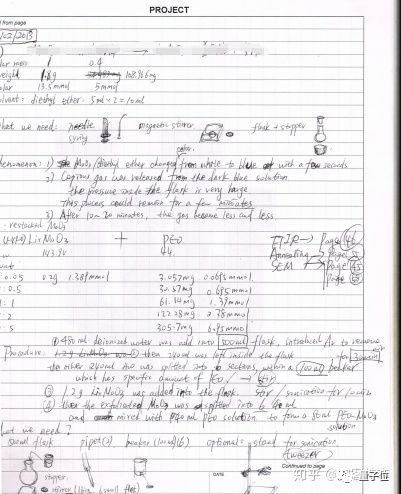 PROJECT
from page
1/22/2013
lar mass 1 0.4
weight 1.8g 108.966mg
olar 13.5mmol 5mmol
solvent: diethyl ether. 5ml × 2 = 10ml
hat we need: needle magnetic stirrer flask + stopper
syring
color
henomenon: 1) MoO3/diethyl ether changed from white to blue with a few seconds
2) Copious gas was released from the dark blue solution
the pressure inside the flask is very large
This process could remain for a few minutes
3) After 10~20 minutes, the gas become less and less
restacked MoO3
LixMoO3 + PEO FTIR → Page
143.9 44. Annealing Page
SEM Page
: 0.05 0.2g 1.389mmol 3.057mg 0.0695mmol Page
: 0.5 30.57mg 0.695mmol
: 1 61.14mg 1.39mmol
: 2 122.28mg 2.78mmol
: 5 305.7mg 6.95mmol
① 480ml deionized water was add into 500ml flask, introduced Ar to remove
Procedure: then 240ml was left inside the flask for 30min
the other 240ml was splitted into 6 sections within a 100ml beaker
which has specific amount of PEO / → stir
③ 1.2g LixMoO3 was added into the flask. Stir / sonication for 10min
④ then the exfoliated MoO3 was splitted into 6 40ml
and mixed with 40ml PEO solution to form a 80ml PEO-MoO3
solution
hat we need?
500ml flask pipet(2) beaker (100ml)(6) optional: stand for sonication
tweezer
stopper.
stirrer (1 big, 6 small flat)
Continued to page
DATE
知乎 @量子位